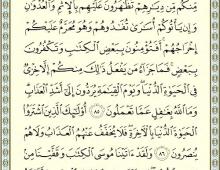 مِّنكُم مِّن دِيَٰرِهِمْ تَظَٰهَرُونَ عَلَيْهِم بِٱلْإِثْمِ وَٱلْعُدْوَٰنِ
وَإِن يَأْتُوكُمْ أُسَٰرَىٰ تُفَٰدُوهُمْ وَهُوَ مُحَرَّمٌ عَلَيْكُمْ
إِخْرَاجُهُمْ أَفَتُؤْمِنُونَ بِبَعْضِ ٱلْكِتَٰبِ وَتَكْفُرُونَ
بِبَعْضٍ فَمَا جَزَآءُ مَن يَفْعَلُ ذَٰلِكَ مِنكُمْ إِلَّا خِزْىٌ
فِى ٱلْحَيَوٰةِ ٱلدُّنْيَا وَيَوْمَ ٱلْقِيَٰمَةِ يُرَدُّونَ إِلَىٰٓ أَشَدِّ ٱلْعَذَابِ
وَمَا ٱللَّهُ بِغَٰفِلٍ عَمَّا تَعْمَلُونَ ٨٥ أُو۟لَٰٓئِكَ ٱلَّذِينَ ٱشْتَرَوُا۟
ٱلْحَيَوٰةَ ٱلدُّنْيَا بِٱلْءَاخِرَةِ فَلَا يُخَفَّفُ عَنْهُمُ ٱلْعَذَابُ وَلَا هُمْ
يُنصَرُونَ ٨٦ وَلَقَدْ ءَاتَيْنَا مُوسَى ٱلْكِتَٰبَ وَقَفَّيْنَا مِنۢ